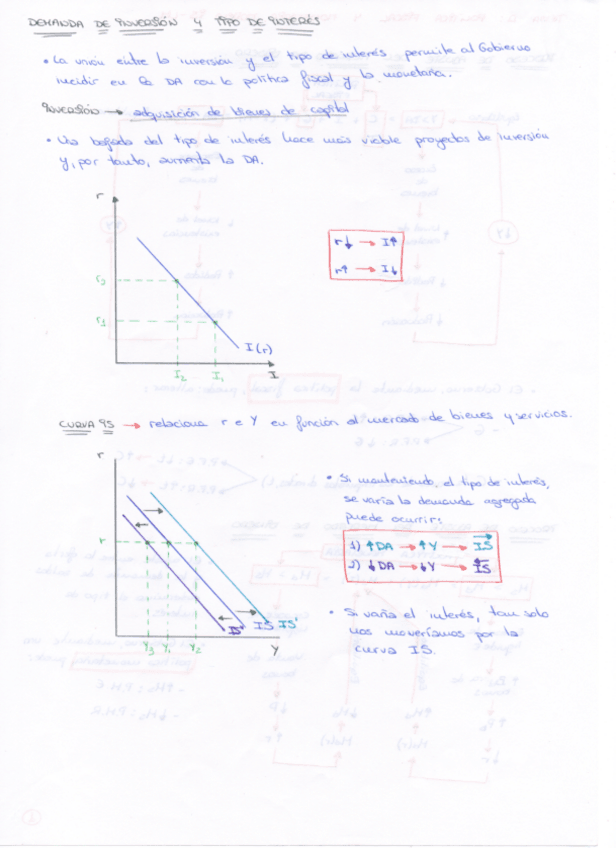 DEMANDA DE INVERSIÓN Y TIPO DE INTERÉS
• La unión entre la inversión y el tipo de interés permite al Gobierno
incidir en la DA con la política fiscal y la monetaria.
INVERSIÓN → adquisición de bienes de capital
• Una bajada del tipo de interés hace más viable proyectos de inversión
y, por tanto, aumenta la DA.
r
r↓ → I↑
r↑ → I↓
r2
r1
I(r)
I2 I1 I
CURVA IS → relaciona r e Y en función al mercado de bienes y servicios.
r
• Si manteniendo, el tipo de interés,
se varía la demanda agregada
puede ocurrir:
1) ↑DA → ↑Y → IS
2) ↓DA → ↓Y → IS
r
• Si varía el interés, tan solo
nos moveríamos por la
curva IS.
IS' IS IS'
Y3 Y1 Y2 Y